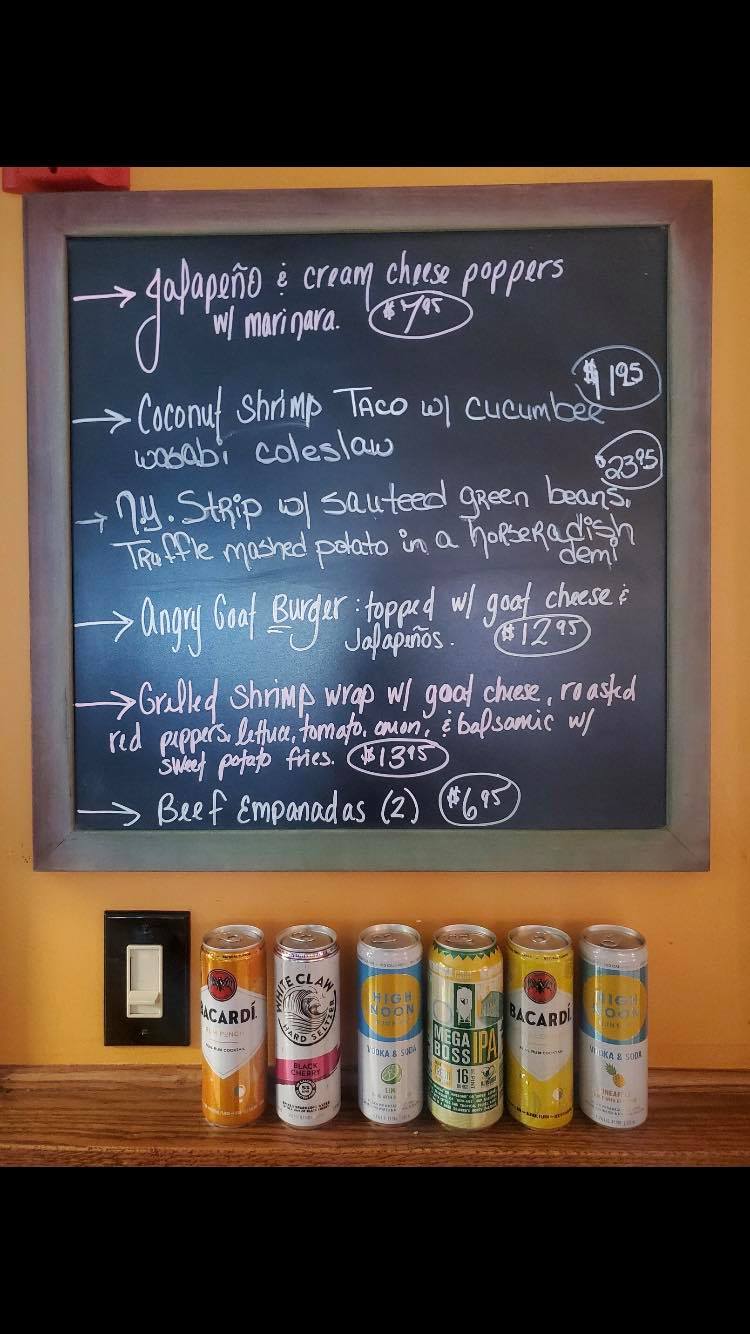 → Jalapeño & cream cheese poppers
w/ marinara. $7.95
$11.95
→ Coconut Shrimp Taco w/ cucumber
wasabi coleslaw
$23.95
→ N.Y. Strip w/ sauteed green beans,
Truffle mashed potato in a horseradish
demi
→ Angry Goat Burger: topped w/ goat cheese &
Jalapeños. $12.95
→ Grilled Shrimp wrap w/ goat cheese, roasted
red peppers, lettuce, tomato, onion, & balsamic w/
sweet potato fries. $13.95
→ Beef Empanadas (2) $6.95
BACARDÍ
RUM PUNCH
REAL RUM COCKTAIL
WHITE CLAW
HARD SELTZER
BLACK
CHERRY
HIGH
NOON
VODKA & SODA
LIME
MEGA
BOSS IPA
16
BACARDÍ
REAL RUM COCKTAIL
HIGH
NOON
VODKA & SODA
PINEAPPLE